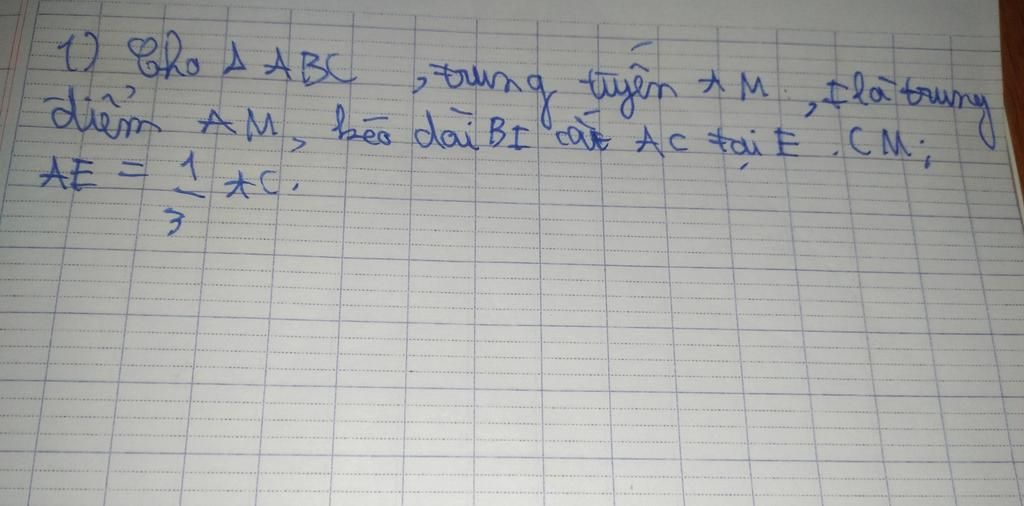 1) Cho Δ ABC, trung tuyến AM, I là trung
điểm AM, kéo dài BI cắt AC tại E. CM:
AE = 1/3 AC.